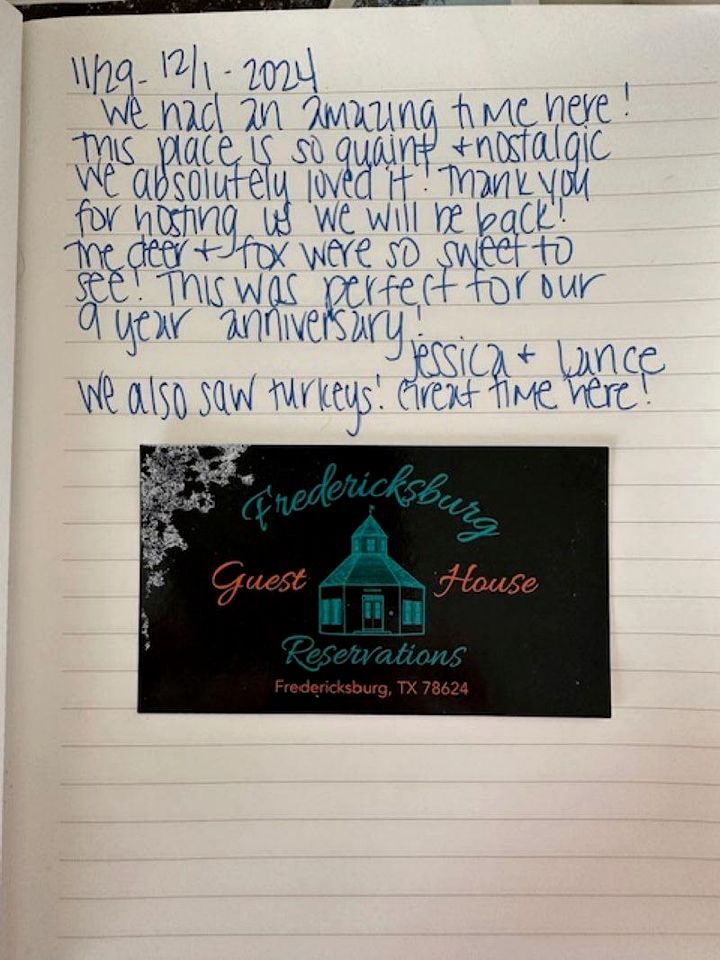 11/29 - 12/1 - 2024
We had an amazing time here!
This place is so quaint + nostalgic
We absolutely loved it! Thank you
for hosting us we will be back!
The deer + fox were so sweet to
see! This was perfect for our
9 year anniversary!
Jessica + Lance
We also saw turkeys! Great time here!
Fredericksburg
Guest House
Reservations
Fredericksburg, TX 78624